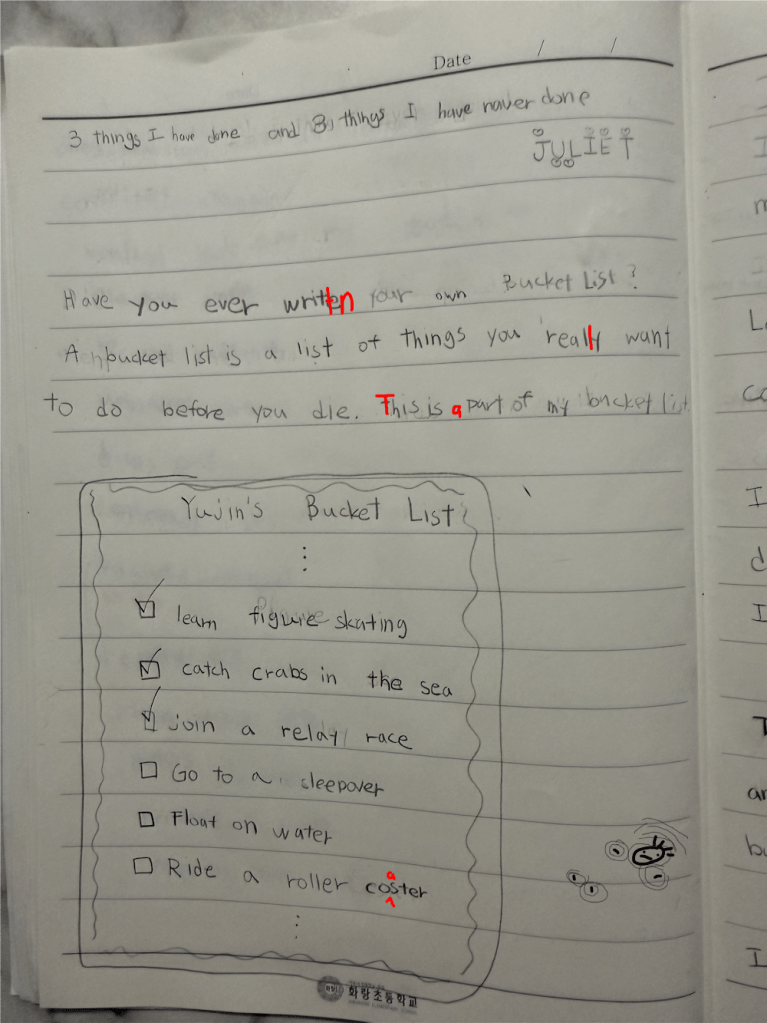 Date / /
3 things I have done and 3 things I have never done
JULIET
Have you ever written your own Bucket List?
A bucket list is a list of things you really want
to do before you die. This is a part of my bucket list
Yujin's Bucket List
⋮
learn figure skating
catch crabs in the sea
join a relay race
Go to a sleepover
Float on water
Ride a roller coaster
⋮
화랑초등학교